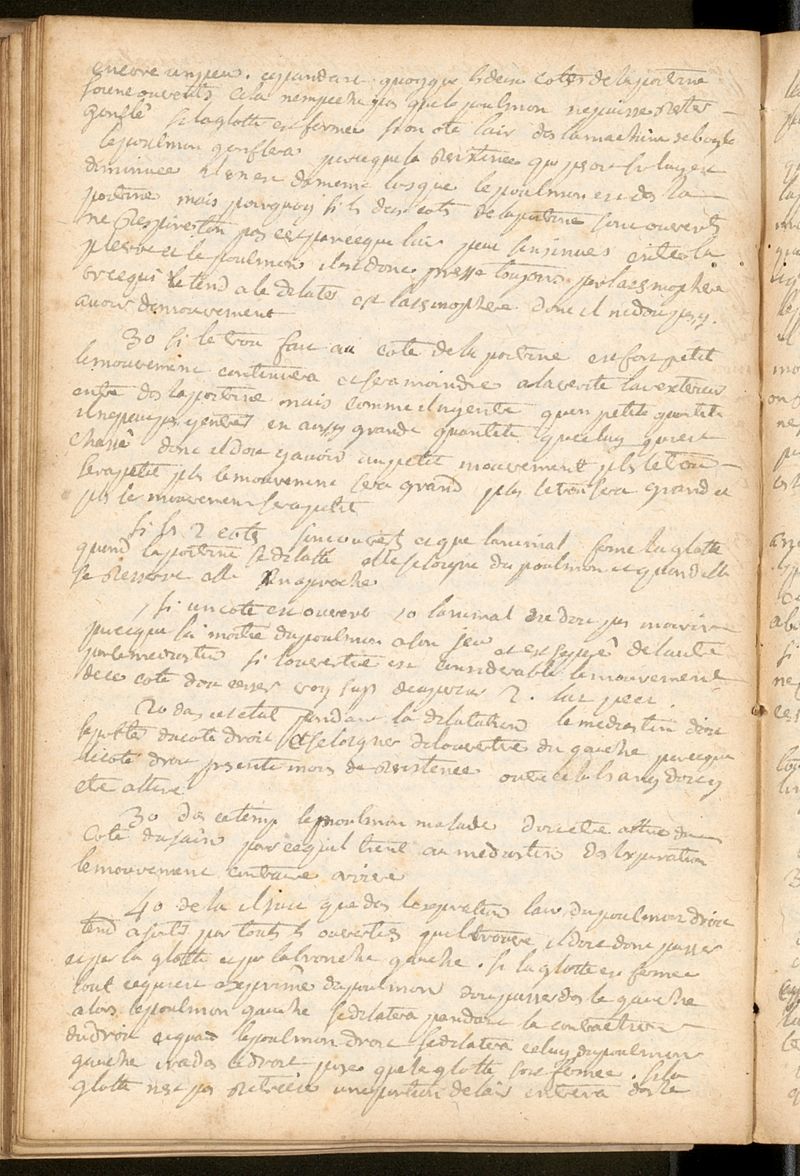 encore un peu. cependant quoyque les deux cotes de la poitrine
soient ouverts cela nempeche pas que le poulmon ne puisse rester
gonflé si la glotte est fermee si on ote lair des la machine de boyle
le poulmon gonflera parceque la resistence qui
diminuee il en est de meme lorsque le poulmon est des la
poitrine mais pourquoy si les deux cotes de la poitrine sont ouverts
ne respireton pas cest parceque lair peut sinsinuer entre la
plevre et le poulmon il est donc presse toujours par latmosphere
or cequi le tend a le dilater est latmosphere donc il ne doit pas y
avoir de mouvement
3o si le trou fait au coté de la poitrine est fort petit
le mouvement continuera et sera moindre a la verité lair exterieur
entre des la poitrine mais comme il ny entre quen petite quantité
il ne peut pas y entrer en aussy grande quantité que celuy qui est
chassé donc il doit y avoir un petit mouvement plus le trou
sera petit plus le mouvement sera grand plus le trou sera grand et
plus le mouvement sera petit
si les 2 cotes sont ouverts et que lanimal ferme la glotte
quand la poitrine se dilatte elle seloigne du poulmon et quand elle
se resserre elle sen aproche
si un coté est ouvert 1o lanimal ne doit pas mourir
parceque la moitié du poulmon a son jeu et est de lautre
par le mediastin si louverture est considerable le mouvement
de ce coté doit cesser
2o des cet etat pendant la dilatation le mediastin doit
se porter du coté droit et seloigner de louverture du gauche parceque
le coté droit presente moins de resistence
ete attiré
3o des ce temp le poulmon malade doit etre attiré du
coté du sain parcequil tient au mediastin des lexpiration
le mouvement contraire arrive
4o de la il suit que des lexpiration lair du poulmon droit
tend a sortir par touts les ouvertures quil trouve il doit donc passer
et par la glotte et par la bronche gauche. si la glotte est fermee
tout cequi est exprimé du poulmon doit passer des le gauche
alors le poulmon gauche se dilatera pendant la contraction
du droit et quand le poulmon droit se dilatera celuy du poulmon
gauche ira des le droit posé que la glotte soit fermee. si la
glotte nest pas retrecie une portion de lair entrera des le